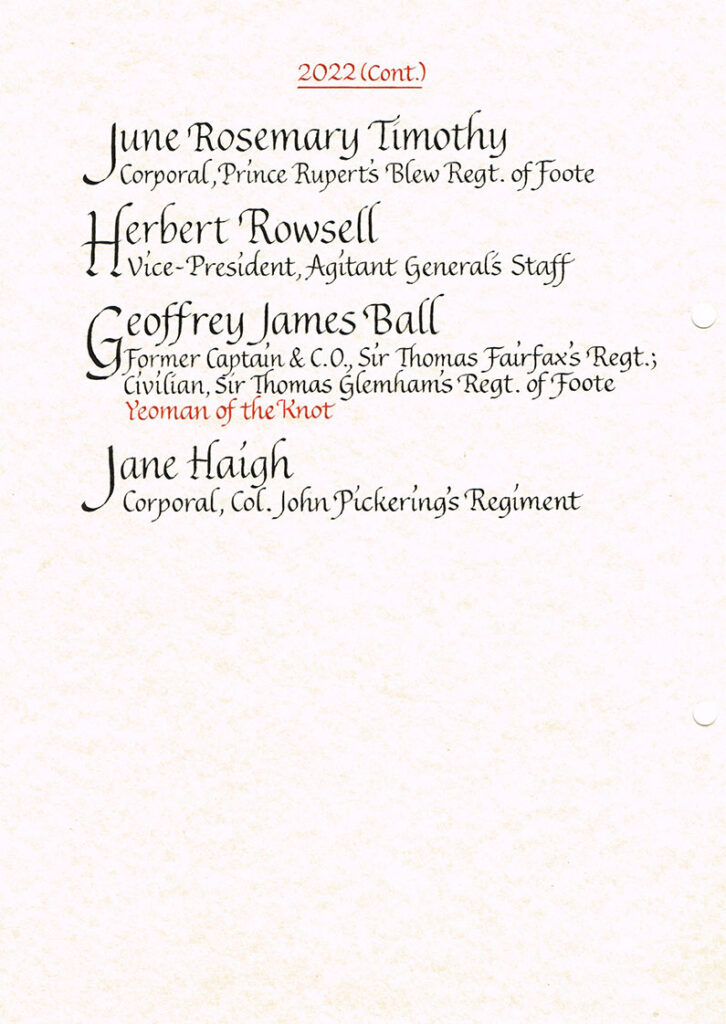 2022 (Cont.)
June Rosemary Timothy
Corporal, Prince Rupert's Blew Regt. of Foote
Herbert Rowsell
Vice-President, Agitant General's Staff
Geoffrey James Ball
Former Captain & C.O., Sir Thomas Fairfax's Regt.;
Civilian, Sir Thomas Glemham's Regt. of Foote
Yeoman of the Knot
Jane Haigh
Corporal, Col. John Pickering's Regiment